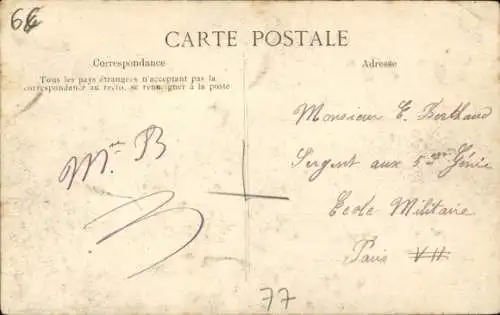 66
CARTE POSTALE
Correspondance
Tous les pays étrangers n'acceptant pas la
correspondance au recto, se renseigner à la poste
Adresse
Monsieur E. Berthaud
Sergent aux 5me Génie
Ecole Militaire
Paris VII
Mme B
77